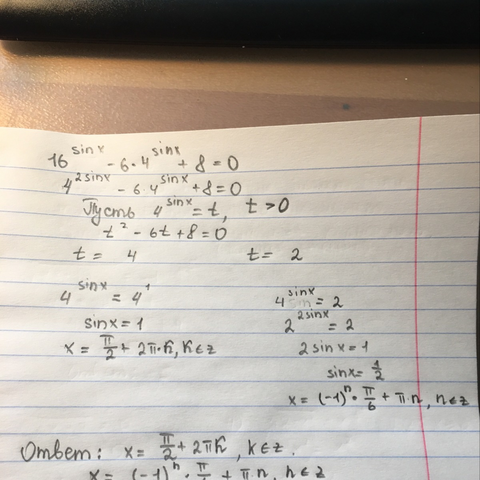 16^sinx - 6·4^sinx + 8 = 0
4^2sinx - 6·4^sinx + 8 = 0
Пусть 4^sinx = t, t > 0
t² - 6t + 8 = 0
t = 4 t = 2
4^sinx = 4^1
sinx = 1
x = π/2 + 2π·k, k∈z
4^sinx = 2
2^2sinx = 2
2sinx = 1
sinx = 1/2
x = (-1)^n · π/6 + π·n, n∈z
Ответ: x = π/2 + 2πk, k∈z.
x = (-1)^n · π/ + πn, n∈z